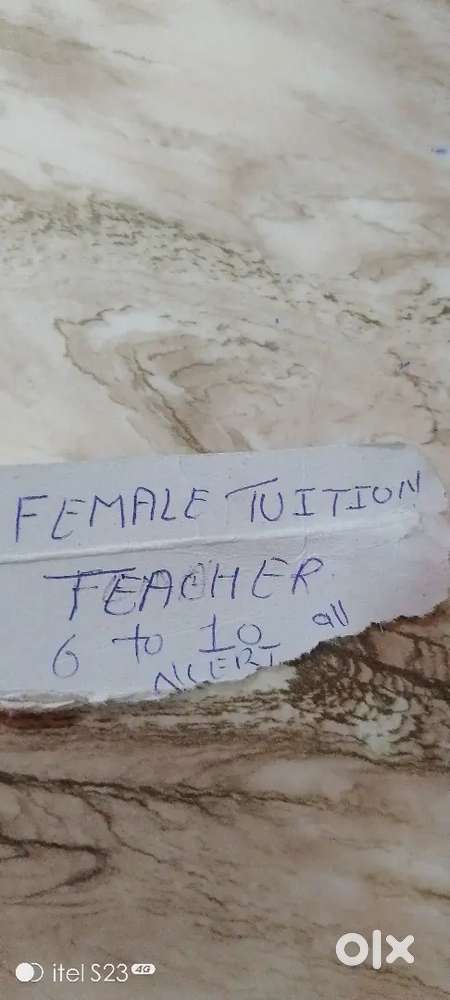 FEMALE TUITION
TEACHER
6 to 10 all
NCERT
olx
itel S23 4G